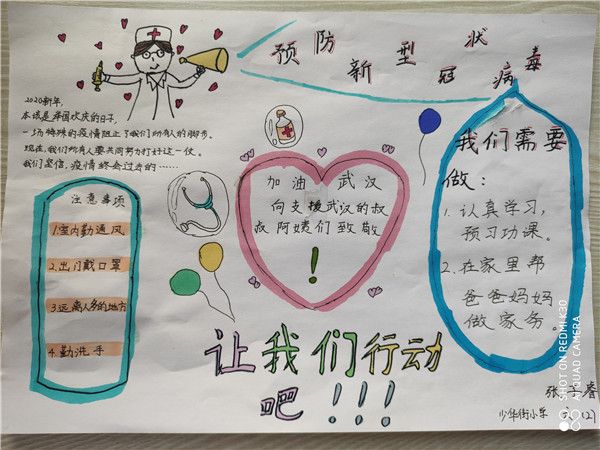 预防新型冠状病毒
2020新年,
本该是举国欢庆的日子,
一场特殊的疫情阻止了我们所有人的脚步。
现在,我们所有人要共同努力打好这一仗。
我们坚信,疫情终会过去的……
注意事项
1.室内勤通风
2.出门戴口罩
3.远离人多的地方
4.勤洗手
加油武汉
向支援武汉的叔
叔阿姨们致敬
!
我们需要
做:
1.认真学习,
预习功课。
2.在家里帮
爸爸妈妈
做家务。
让我们行动
吧!!!
少华街小学 六(2)
SHOT ON REDMI K30
AI QUAD CAMERA